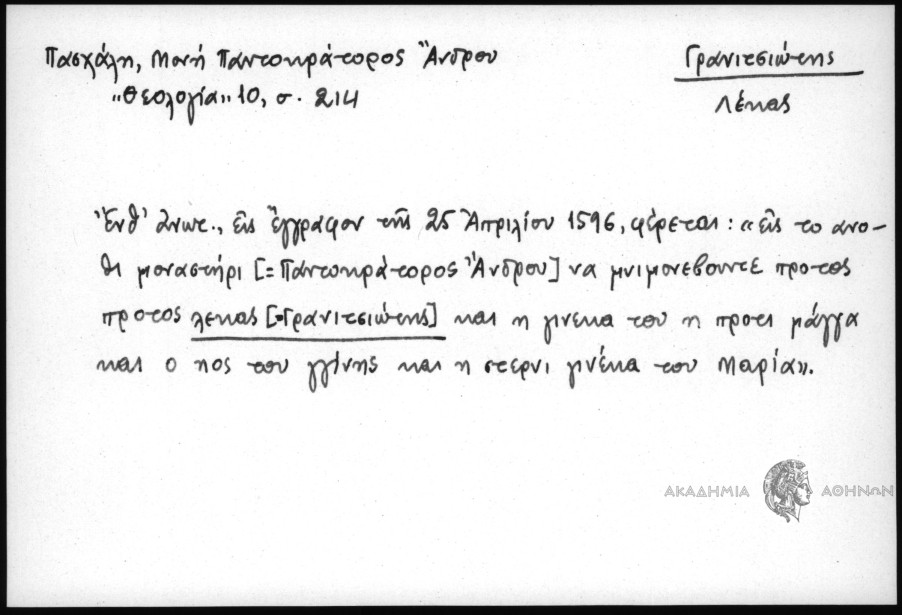 Πασχάλη, Μονή Παντοκράτορος Ἄνδρου
"Θεολογία" 10, σ. 214
Γρανιτσιώτης
Λέκας
Ἔνθ' ἄνωτ., εἰς ἔγγραφον τῆς 25 Ἀπριλίου 1596, φέρεται: «εἰς το ανο-
θι μοναστήρι [= Παντοκράτορος Ἄνδρου] να μνιμονεβουντε προτος
προτος λεκας [=Γρανιτσιώτης] και η γινεκα του η προτι μάγγα
και ο ηος του γγίνης και η στερνι γινέκα του Μαρία».
ΑΚΑΔΗΜΙΑ ΑΘΗΝΩΝ